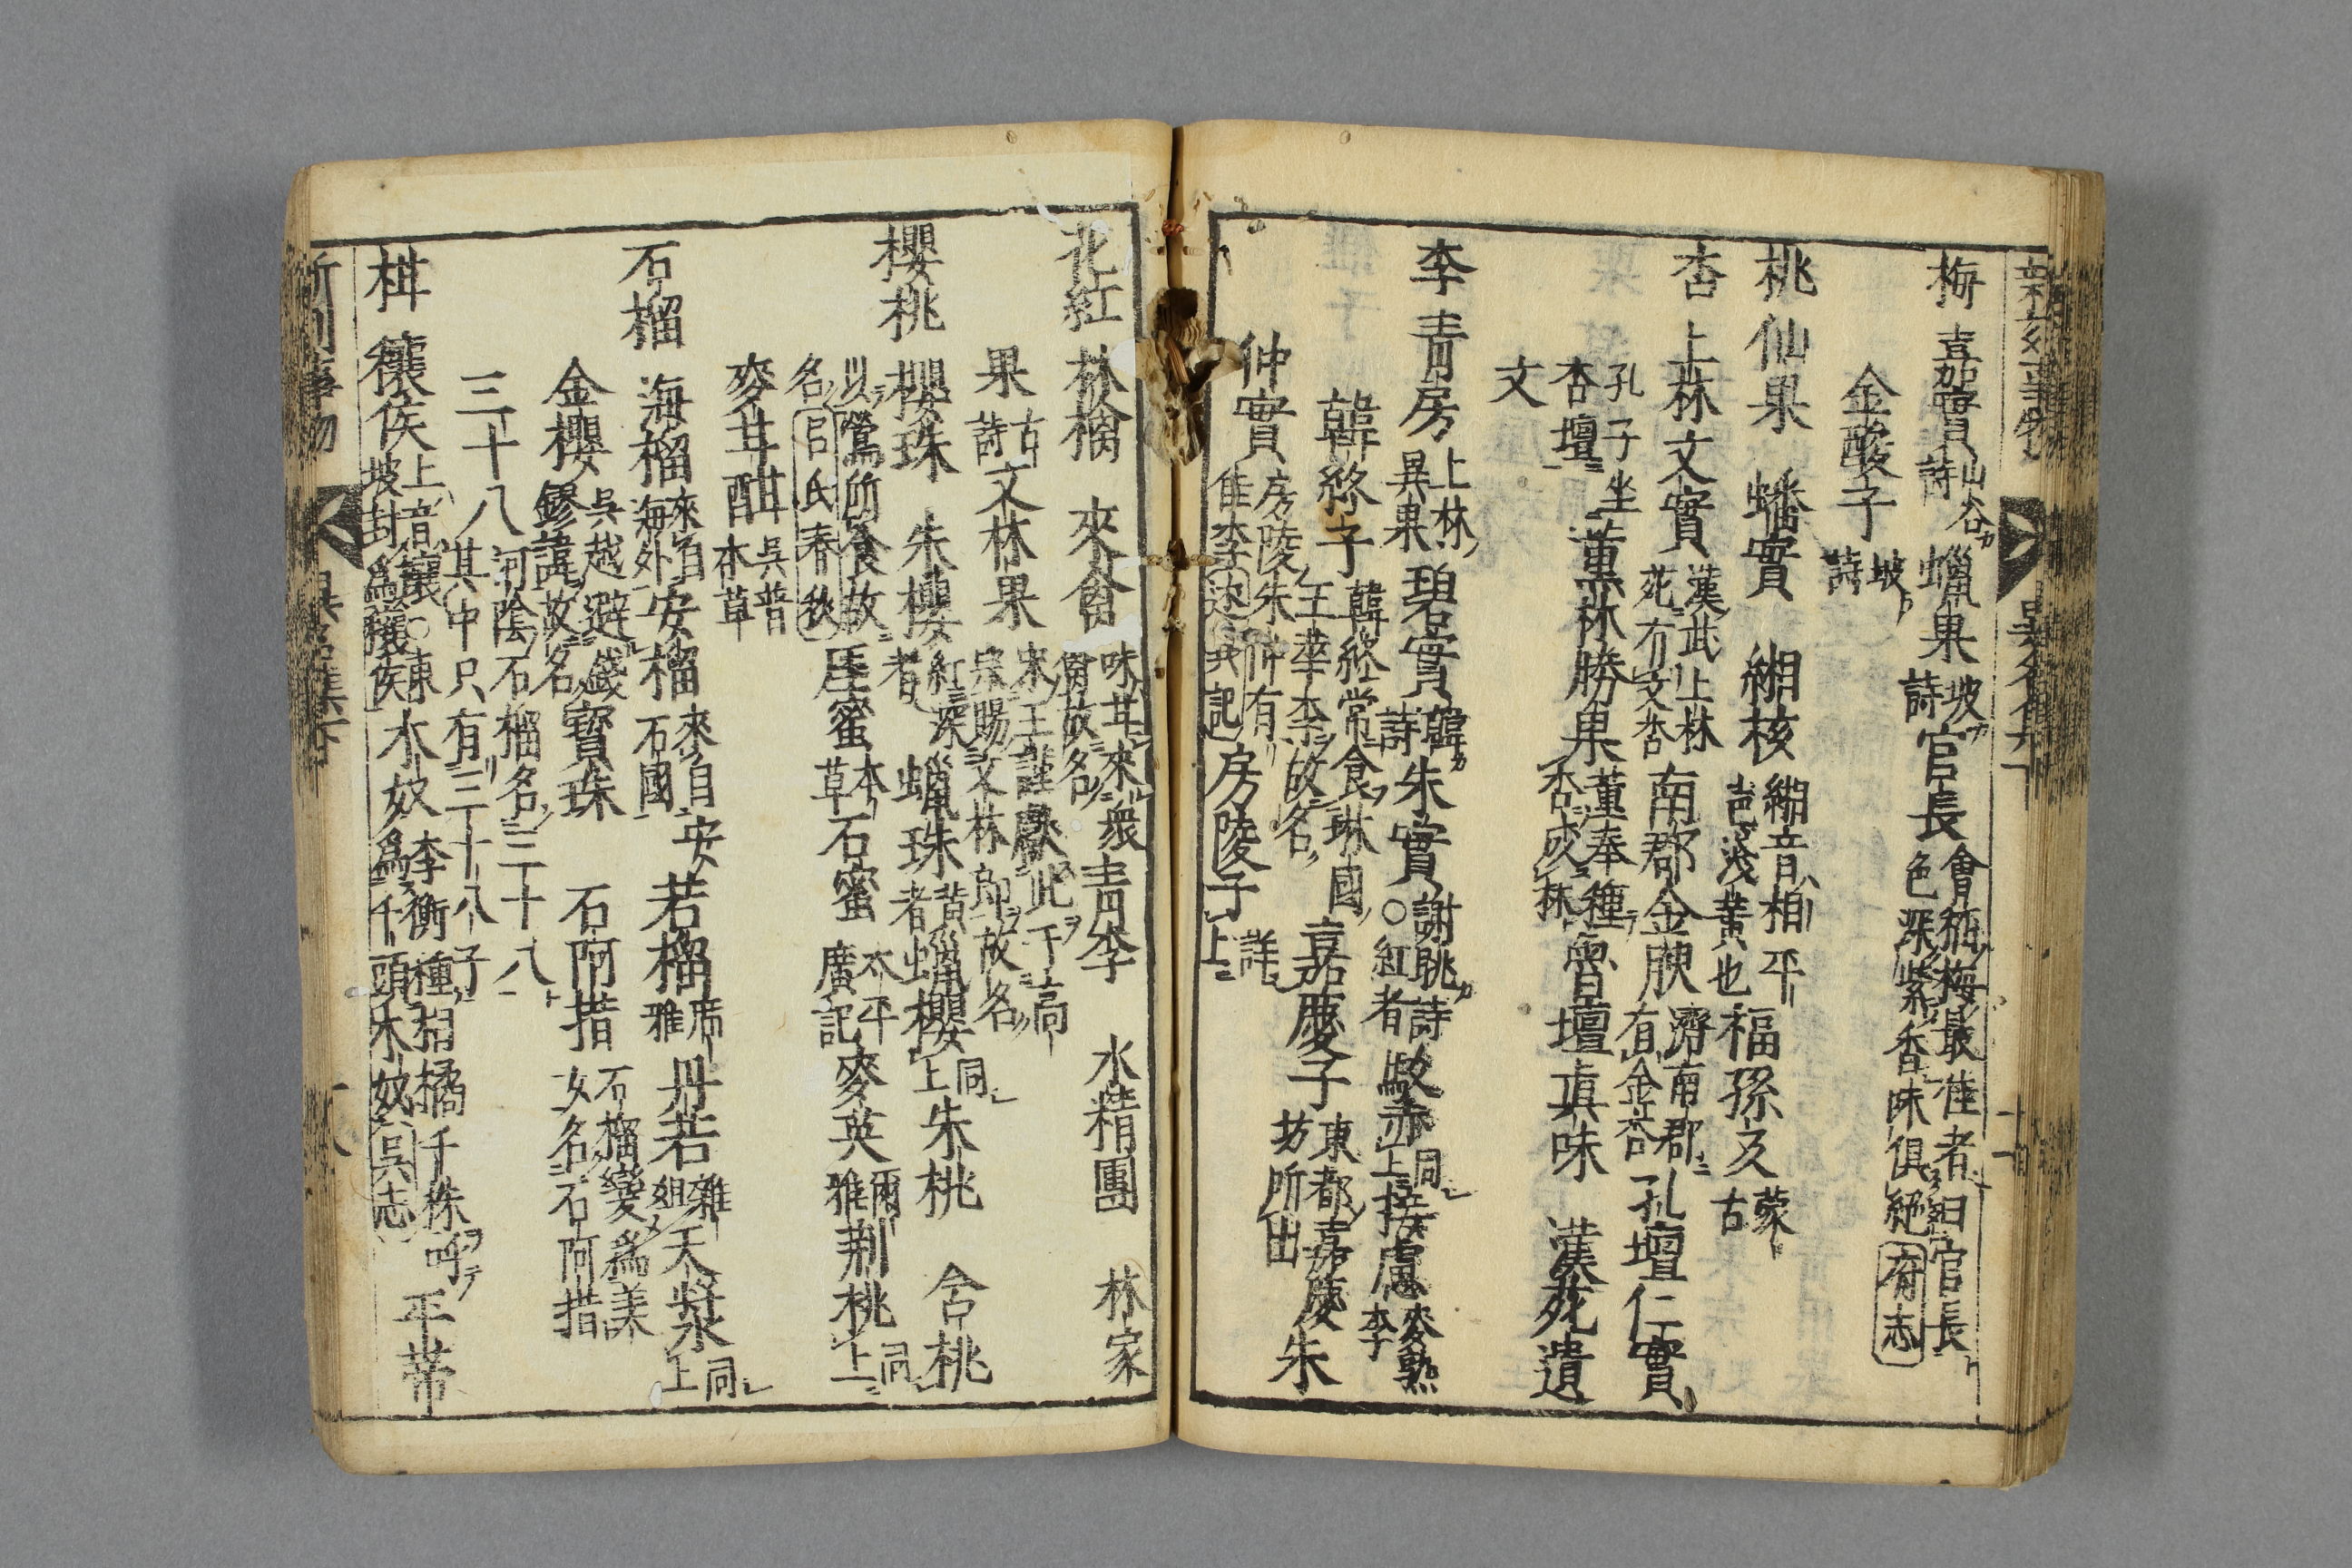 梅 嘉實 山谷カ詩 蠟果 坡カ詩 官長 會稱梅最佳者曰官長色深紫香味俱絕府志
金酸子 坡カ詩
桃 仙果 蟠實 緗核 緗音相平色淺黄也 福孫 文蒙古
杏 上林文實 漢武上林苑有文杏 南郡金腴 濟南郡有金杏 孔壇仁實
孔子坐杏壇 董林勝果 董奉種杏成林 魯壇真味 漢苑遺
文
李 青房 上林異果 碧實 韓カ詩 朱實 謝眺カ詩○紅者 駁赤 同上 接慮 麥熟李
韓終子 韓終常食琳國玉華李故名 嘉慶子 東都嘉慶坊所出 朱
仲實 房陵朱仲有佳李述異記 房陵子 詳上
花紅 林檎 來禽 味甘來衆禽故名 青李 水精團 林家
果 古詩 文林果 宋王謹獻此于高宗賜文林郎故名
櫻桃 櫻珠 朱櫻 紅深者 蠟珠 黄者 蠟櫻 同上 朱桃 含桃
以鶯所食故名呂氏春秋 崖蜜 本草 石蜜 太平廣記 麥英 爾雅 荆桃 同上
麥甘酣 吳普本草
石榴 海榴 來自海外 安榴 來自安石國 若榴 廣雅 丹若 雜俎 天漿 同上
金櫻 吳越避錢鏐諱故名 寳珠 石阿措 石榴變爲美女名石阿措
三十八 河陰石榴名三十八其中只有三十八子
柑 穰侯 上音穰○東坡封爲穰侯 木奴 李衡種柑橘千株呼爲千頭木奴吳志 平蔕